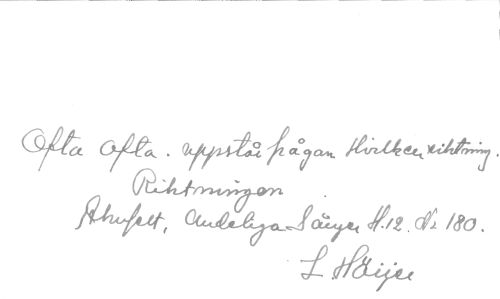 Ofta Ofta. uppstår frågan Hvilken riktning.
Riktningen
Ahnfelt, Andeliga Sånger H.12. No 180.
L. Höijer